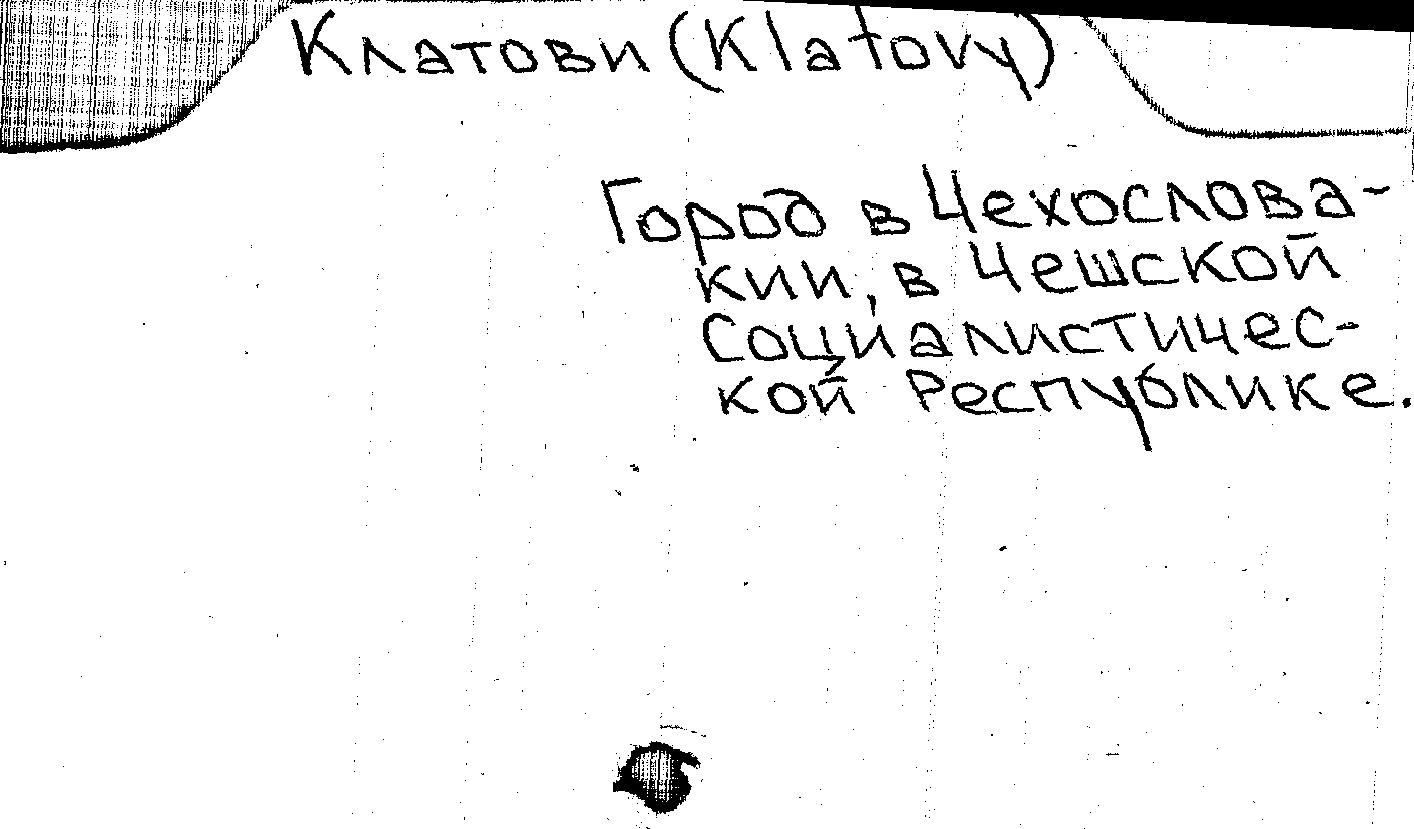 Клатови (Klatovy)
Город в Чехослова-
кии, в Чешской
Социалистичес-
кой Республике.